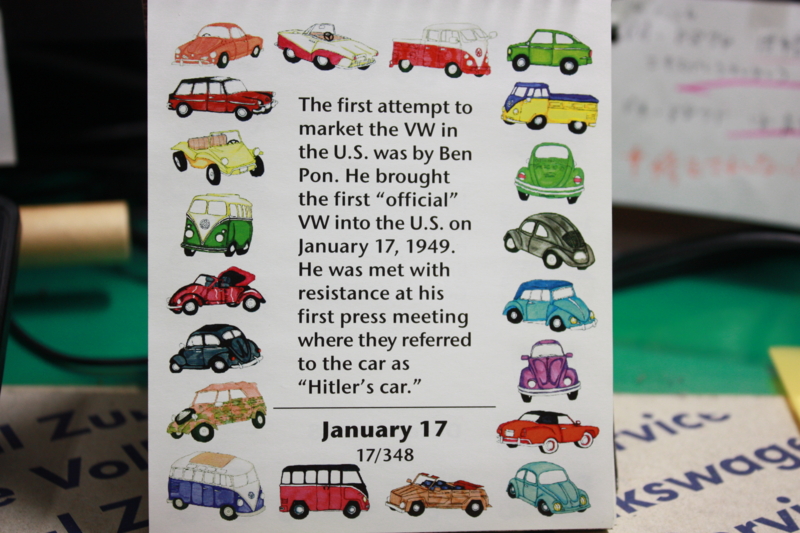 The first attempt to
market the VW in
the U.S. was by Ben
Pon. He brought
the first “official”
VW into the U.S. on
January 17, 1949.
He was met with
resistance at his
first press meeting
where they referred
to the car as
“Hitler’s car.”
January 17
17/348